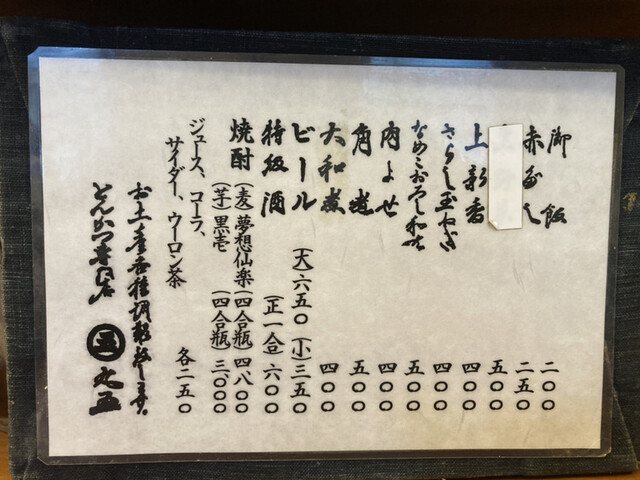 御飯 二〇〇
赤だし 二五〇
五〇〇
上新香 四〇〇
さらし玉ねぎ 四〇〇
なめこおろし和え 五〇〇
肉よせ 四〇〇
角煮 五〇〇
大和煮 四〇〇
ビール (大)六五〇 (小)三五〇
特級酒 (正一合) 六〇〇
焼酎 (麦)夢想仙楽(四合瓶) 四八〇〇
(芋)黒壱(四合瓶) 三〇〇〇
ジュース、コーラ、
サイダー、ウーロン茶 各二五〇
お土産各種調製致します。
とんかつ専門店 五 丸五